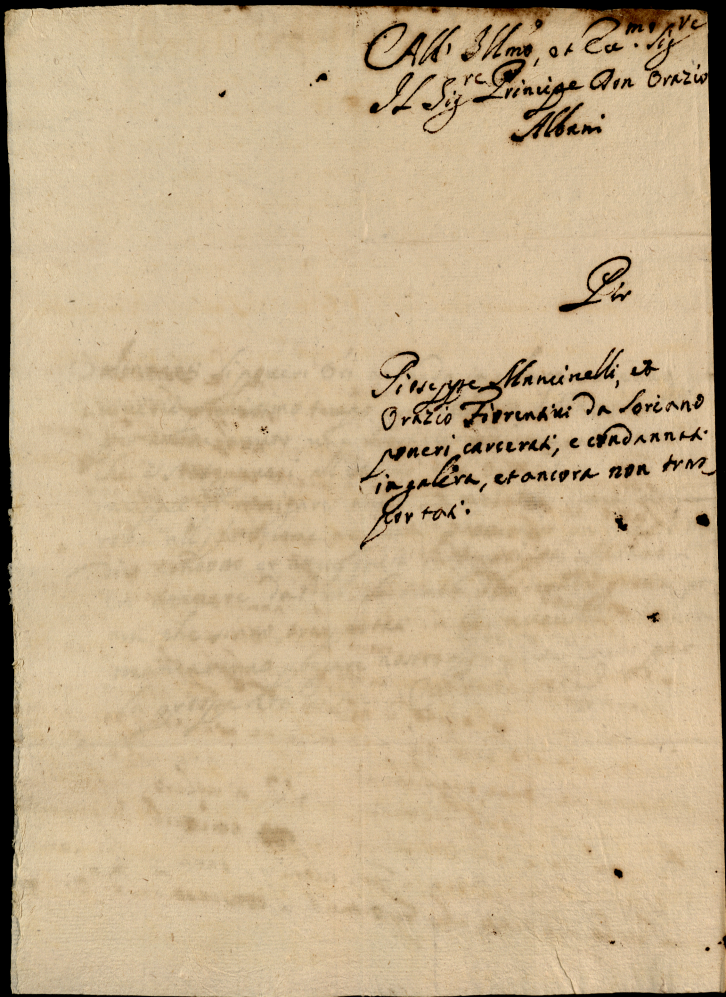 All' Illmo, et Ecc.mo Sig.re
Il Sig.re Principe Don Orazio
Albani
Per
Gioseppe Mancinelli, et
Orazio Fiorentini da Soriano
poveri carcerati, e condannati
in galera, et ancora non tras-
portati.